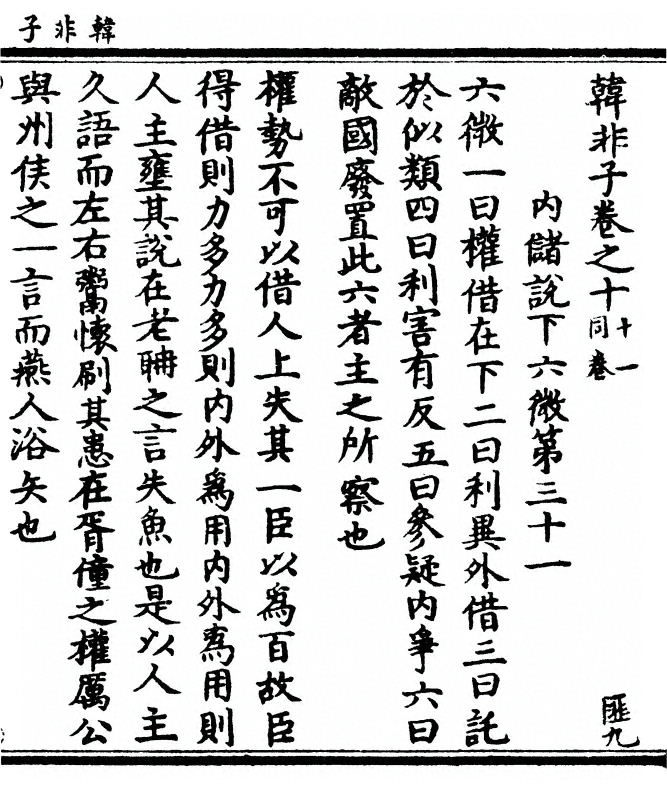 韓非子
韓非子卷之十 十一同卷 匪九
内儲說下六微第三十一
六微一曰權借在下二曰利異外借三曰託
於似類四曰利害有反五曰參疑内爭六曰
敵國廢置此六者主之所察也
權勢不可以借人上失其一臣以爲百故臣
得借則力多力多則内外爲用内外爲用則
人主壅其說在老聃之言失魚也是以人主
久語而左右鬻懷刷其患在胥僮之權厲公
與州侯之一言而燕人浴矢也